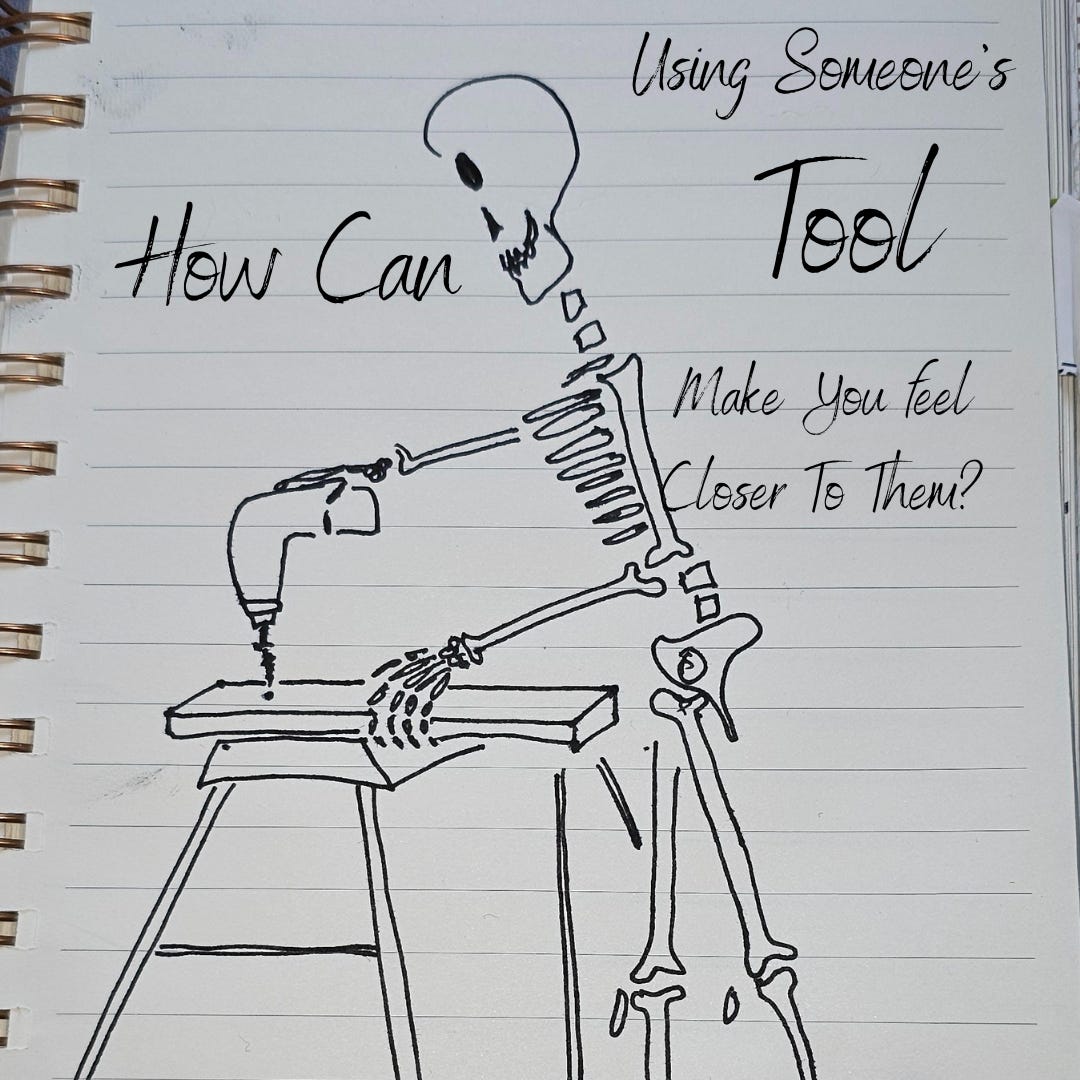 How Can
Using Someone's
Tool
Make You feel
Closer To Them?